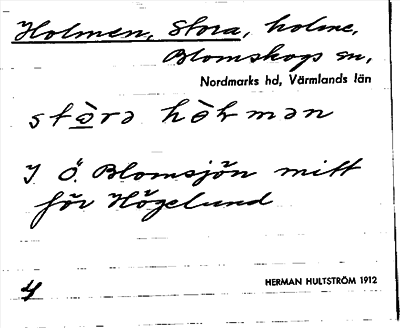 Holmen, Stora, holme,
Blomskogs sn,
Nordmarks hd, Värmlands län
I Ö. Blomsjön mitt
för Högelund
HERMAN HULTSTRÖM 1912